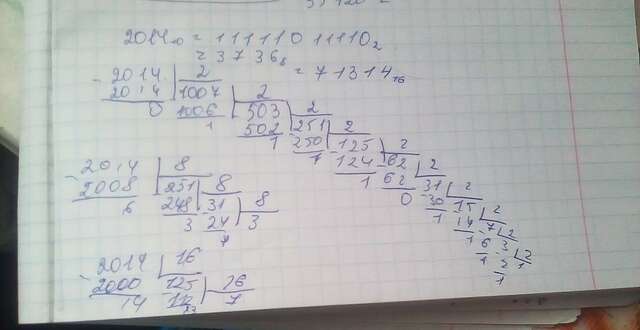 2014₁₀ = 11111011110₂
= 3736₈
= 71314₁₆
- 2014 | 2
2014 | 1007 | 2
0 1006 | 503 | 2
1 502 - 251 | 2
1 250 - 125 | 2
1 124 - 62 | 2
1 62 31 | 2
0 - 30 - 15 | 2
1 14 - 7 | 2
1 6 - 3 | 2
1 2 1
1
- 2014 | 8
2008 | 251 | 8
6 248 - 31 | 8
3 24 3
7
- 2014 | 16
- 2000 | 125 | 16
14 112 7
13